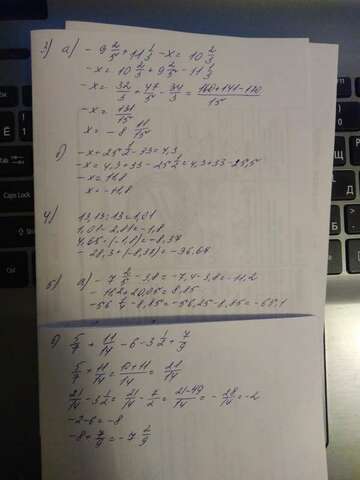 3) а) - 9 2/5 + 11 1/3 - x = 10 2/3
-x = 10 2/3 + 9 2/5 - 11 1/3
-x = 32/3 + 47/5 - 34/3 = (160+141-170)/15
-x = 131/15
x = -8 11/15
б) -x + 25 1/2 - 33 = 4,3
-x = 4,3 + 33 - 25 1/2 = 4,3 + 33 - 25,5
-x = 11,8
x = -11,8
4) 13,13:13 = 1,01
1,01 - 2,81 = -1,8
4,65 · (-1,8) = -8,37
- 28,3 + (-8,37) = -36,67
5) а) - 7 2/5 - 3,8 = -7,4 - 3,8 = -11,2
- 11,2 + 20,05 = 8,85
-56 1/4 - 8,85 = -56,25 - 8,85 = -65,1
б) 5/7 + 11/14 - 6 - 3 1/2 + 7/9
5/7 + 11/14 = (10+11)/14 = 21/14
21/14 - 3 1/2 = 21/14 - 7/2 = (21-49)/14 = - 28/14 = -2
-2 - 6 = -8
-8 + 7/9 = -7 2/9